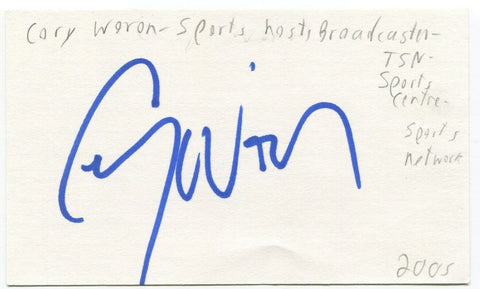 Cory Woron - Sports hosts Broadcaster -
TSN -
Sports
Centre -
Sports
Network
2005